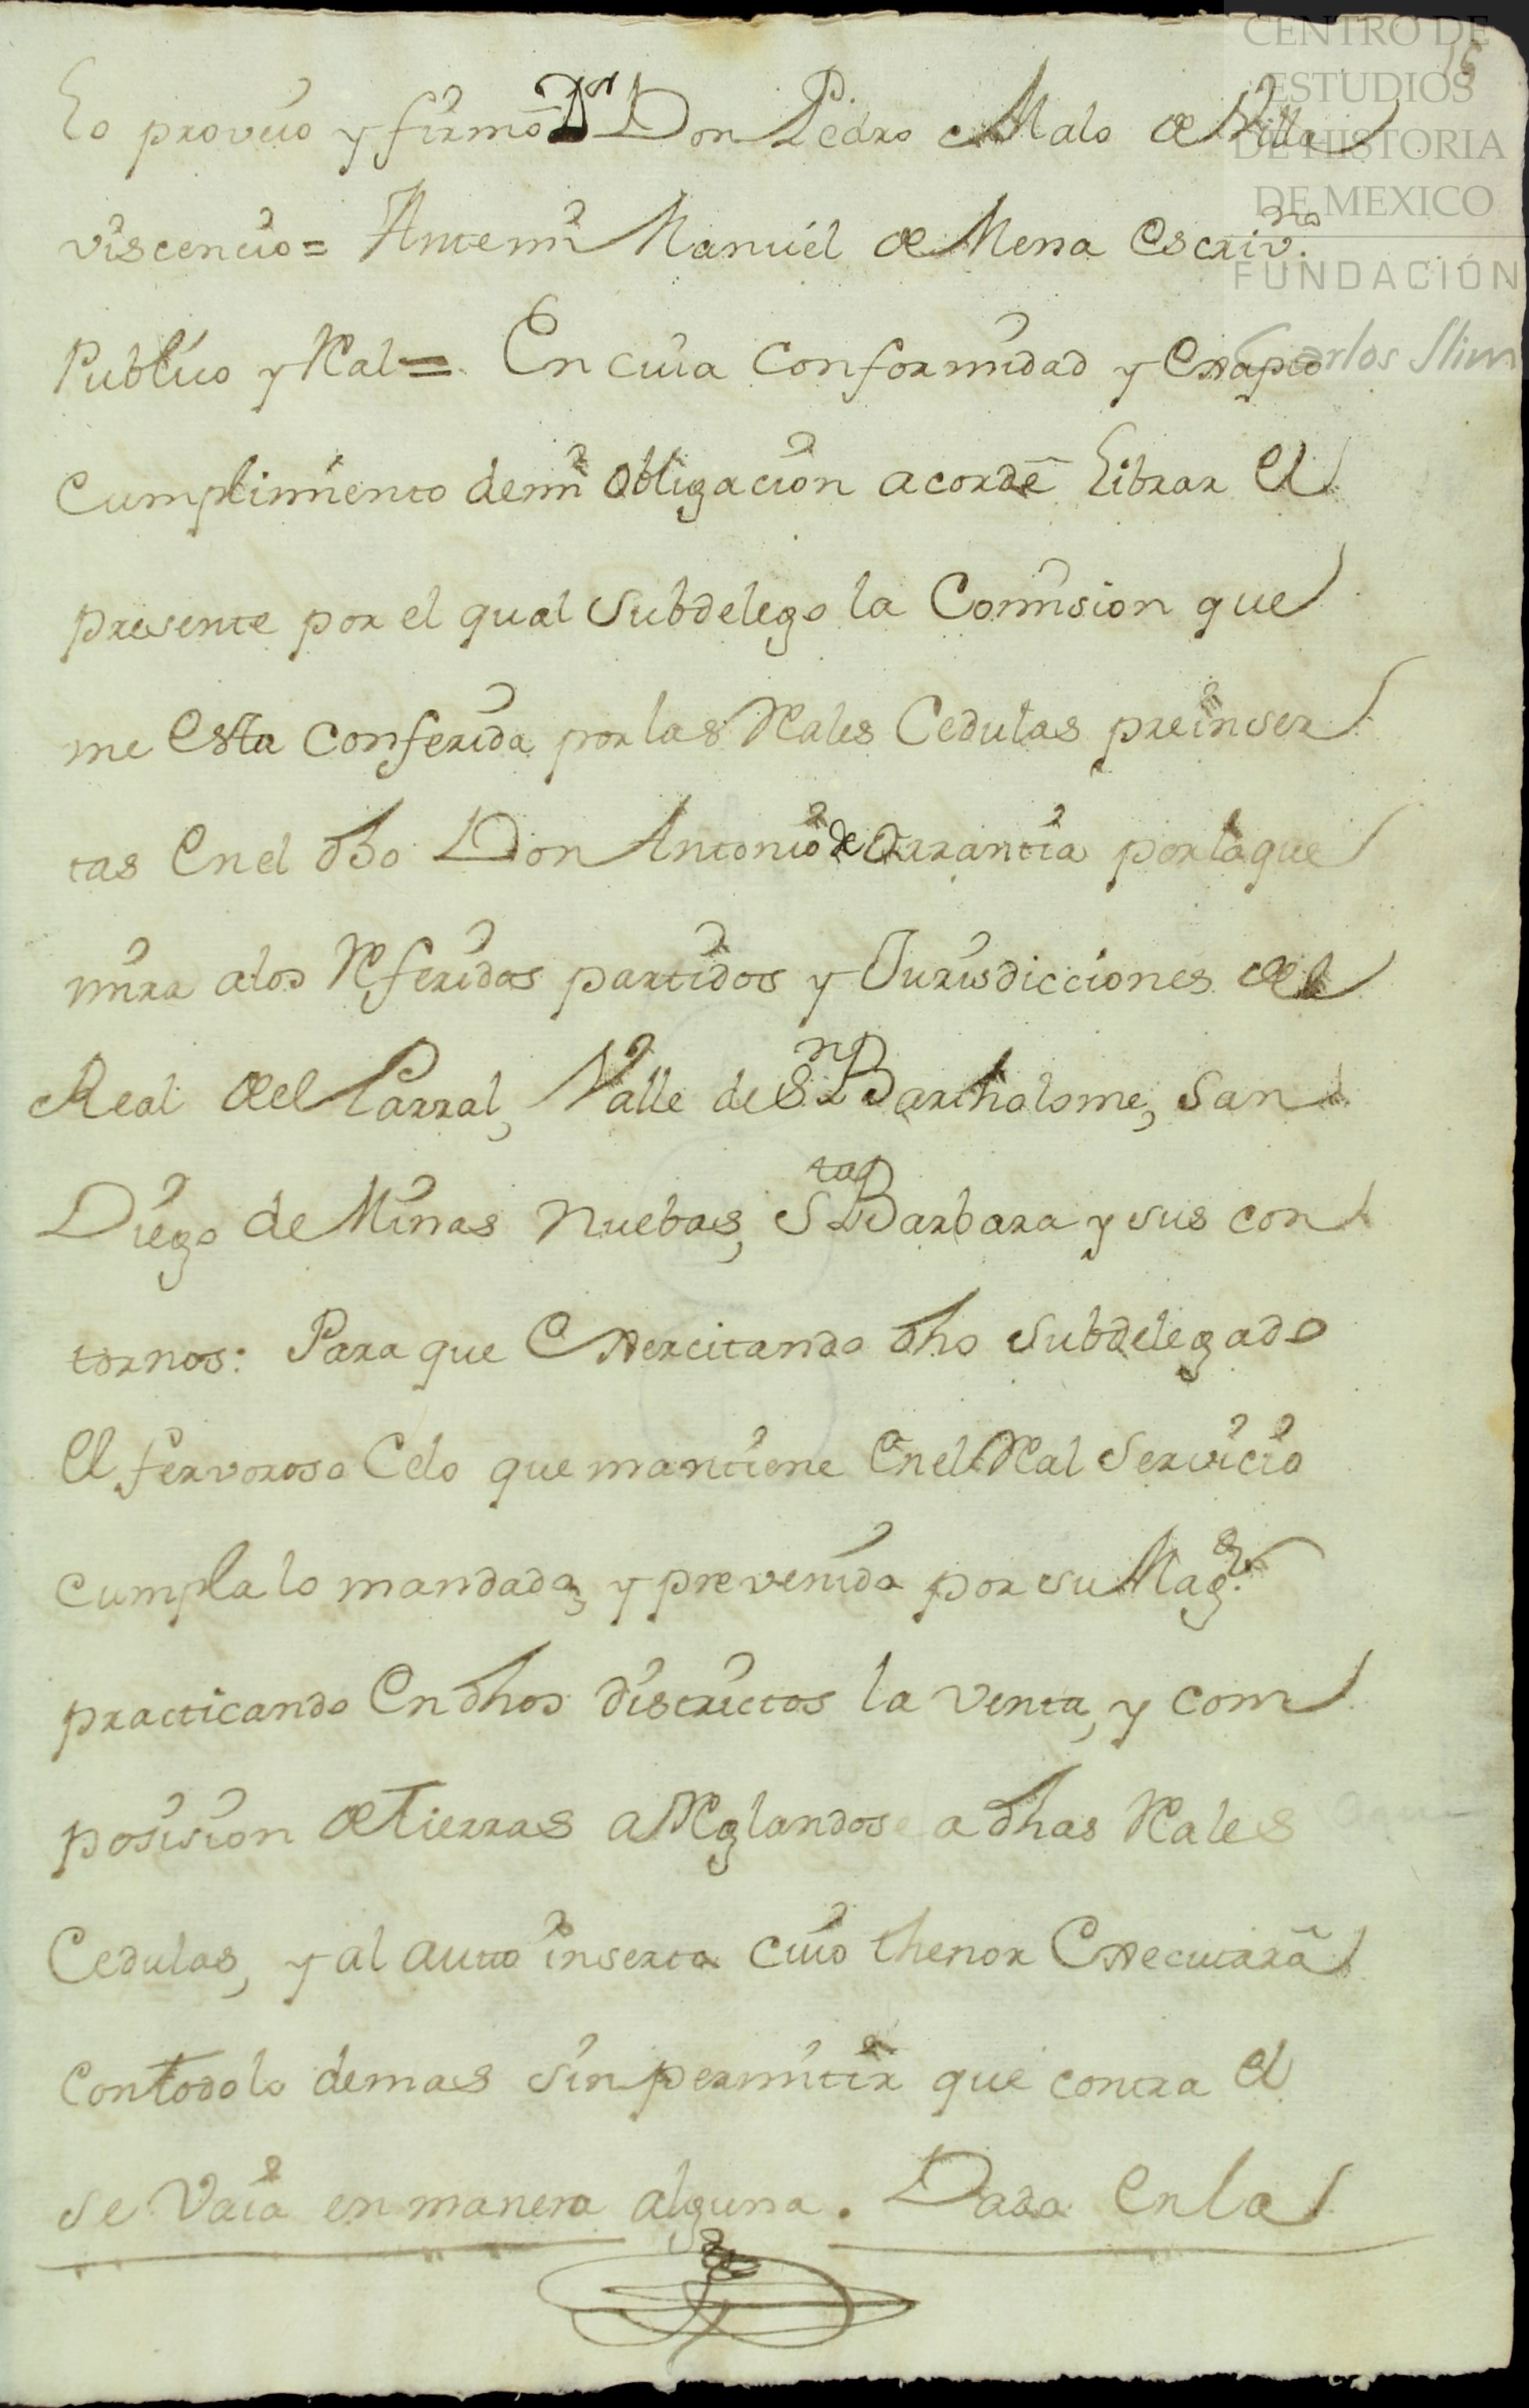 CENTRO DE
ESTUDIOS
DE HISTORIA
DE MEXICO
FUNDACIÓN
Carlos Slim
Lo proveio y firmò Dn Don Pedro Malo de Villa
viscencio = Antemi Manuel de Mena Escriv.no
Publico y Ral = En cuia conformidad y en
cumplimiento demi obligacion acordè Librar el
presente por el qual subdelego la Comision que
me esta conferida por las Rales Cedulas preinser
tas en el dho Don Antonio de Arrantia por la que
mira alos Referidos partidos y Jurisdicciones del
Real del Parral, Valle de Sn Bartholome, San
Diego de Minas nuebas, Sta Barbara y sus con
tornos: Para que Exercitando dho subdelegado
el fervoroso Celo que mantiene en el Ral servicio
cumpla lo mandado, y prevenido por su Mag.d
practicando en dhos districtos la venta, y com
posision de Tierras aReglandose a dhas Rales
Cedulas, y al auto inserto cuio thenor Executarà
con todo lo demas sin permitir que contra el
se vaia en manera alguna. Dada en la